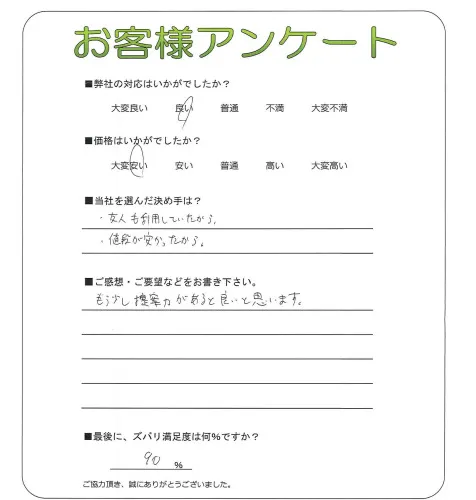 お客様アンケート
■弊社の対応はいかがでしたか?
大変良い 良い 普通 不満 大変不満
■価格はいかがでしたか?
大変安い 安い 普通 高い 大変高い
■当社を選んだ決め手は?
・友人も利用していたから。
・値段が安かったから。
■ご感想・ご要望などをお書き下さい。
もう少し提案力があると良いと思います。
■最後に、ズバリ満足度は何%ですか?
90 %
ご協力頂き、誠にありがとうございました。